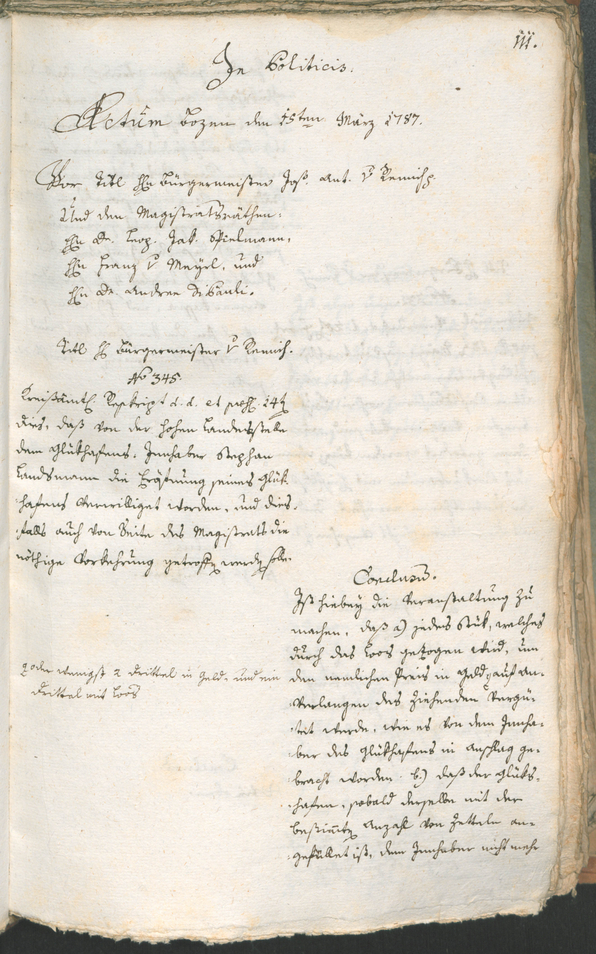 111.
In Politicis.
Actum Bozen den 15ten März 1787.
Vor Titl Hn Bürgermeister Jos. Ant. v Remich
Und den Magistratsräthen:
Hn Dr. Leop. Jak. Spielmann,
Hn Franz v Mayrl, und
Hn Dr. Andree Dibauli.
Titl H Bürgermeister v Remich.
No 345.
Kreißämtl. Reskript d. d. et præs. 14t
dies, daß von der hohen Landesstelle
dem Glükhafens-Innhaber Stephan
Landsmann die Eröfnung seines Glük-
hafens bewilliget worden, und dies-
falls auch von Seite des Magistrats die
nöthige Vorkehrung getroffen werden solle.
Conclusum.
Ist hiebey die Veranstaltung zu
machen, daß a) jedes Stük, welches
durch das Loos gezogen wird, um
den nemlichen Preis in Geld auf an-
verlangen des Ziehenden vergü-
tet werde, wie es von dem Innha-
ber des Glükhafens in Anschlag ge-
bracht worden. b.) daß der Glüks-
hafen, sobald derselbe mit der
bestimten Anzahl von Zetteln an-
gefüllet ist, dem Innhaber nicht mehr
oder wenigst 2 Drittel in Geld, und ein
Drittel mit Loos